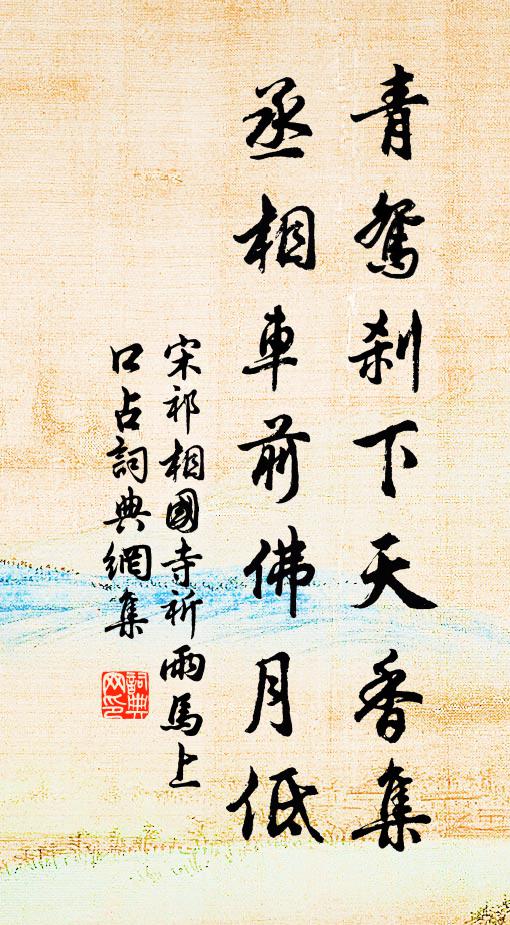 青鴛刹下天香集
丞相車前佛月低
宋祁相國寺祈雨馬上
口占詞典網集
詞典
网印